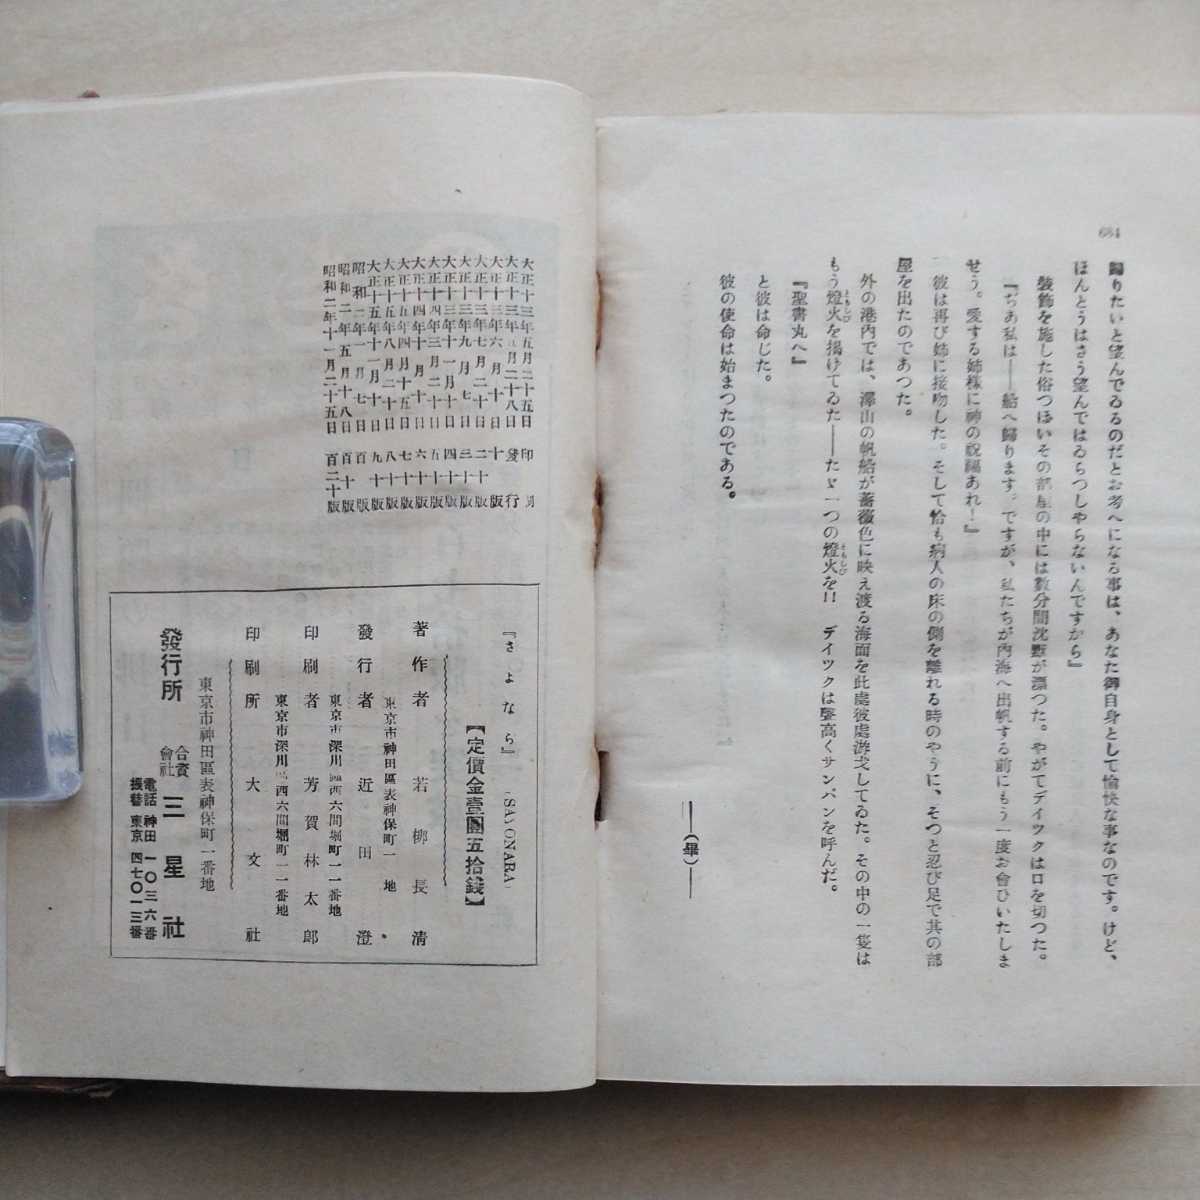 684
歸りたいと望んでゐるのだとお考へになる事は、あなた御自身として愉快な事なのです。けど、
ほんとうはさう望んではゐらつしやらないんですから』
裝飾を施した俗つぽいその部屋の中には數分間沈默が漂つた。やがてデイツクは口を切つた。
『ぢあ私は——船へ歸ります。ですが、私たちが內海へ出帆する前にもう一度お會ひいたしま
せう。愛する姉樣に神の祝福あれ！』
彼は再び姉に接吻した。そして恰も病人の床の側を離れる時のやうに、そつと忍び足で其の部
屋を出たのであつた。
外の港內では、澤山の帆船が薔薇色に映え渡る海面を此處彼處游弋してゐた。その中の一隻は
もう燈火を揭げてゐた——たゞ一つの燈火を!! デイツクは聲高くサンパンを呼んだ。
『聖書丸へ』
と彼は命じた。
彼の使命は始まつたのである。
——(畢)——
大正十三年五月二十五日 印
大正十三年五月二十八日 發行
大正十三年六月十日 十版
大正十三年七月二十日 二十版
大正十三年九月七日 三十版
大正十三年十一月十日 四十版
大正十四年三月二十日 五十版
大正十四年十月十日 六十版
大正十五年四月十五日 七十版
大正十五年八月二十日 八十版
大正十五年十一月十日 九十版
昭和二年一月七日 百版
昭和二年五月十八日 百十版
昭和二年十一月二十五日 百二十版
『さよなら』 (SAYONARA)
【定價金壹圓五拾錢】
著作者 若柳長淸
東京市神田區表神保町一 地
發行者 近田澄
東京市深川區西六間堀町一一番地
印刷者 芳賀林太郎
東京市深川區西六間堀町一一番地
印刷所 大文社
東京市神田區表神保町一番地
發行所 合資會社 三星社
電話 神田 一〇三六番
振替 東京 四七〇一三番